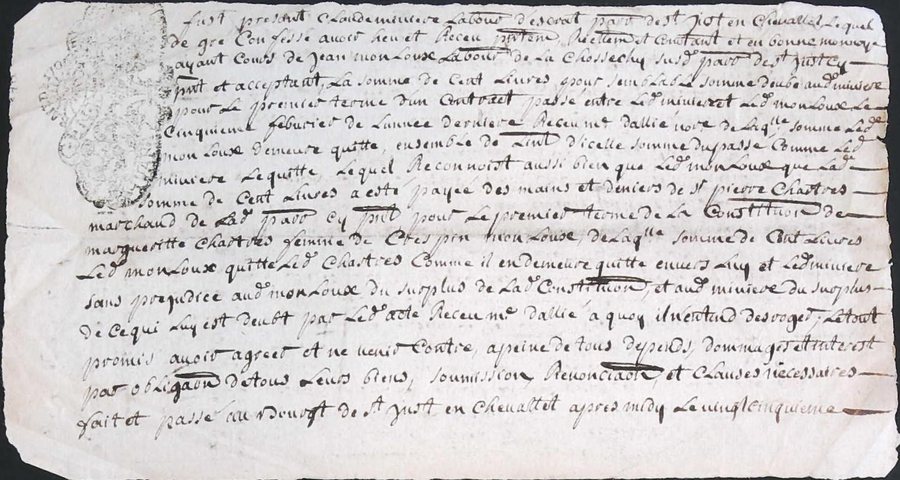 fust present Claude miniere Labour desrat parr de st Just en Chevallet Lequel
de gre Confesse avoir heu et Receu pntem Reellem et Contant et en bonne monoye
ayant Cours de Jean mon Loux Labour de La Chossechy susd parr de st Just Cy
pnt et acceptant, La somme de Cent Livres pour semblable somme deube aud miniere
pour Le premier terme dun Contract passe entre Led miniere et Led mon Loux Le
Cinquieme feburier de Lannee derniere Receu me dallie nore de Laqlle somme Led
mon Loux demeure quitte, ensemble de Lint dicelle somme du passe Comme Led
miniere Lequitte, Lequel Reconnoist aussi bien que Led mon Loux que Lad
somme de Cent Livres a este payee des mains et deniers de sr pierre Chartres
marchand de Lad parr Cy pnt pour Le premier terme de La Constituon de
margueritte Chartres femme de Crespin mon Loux, de Laqlle somme de Cent Livres
Led mon Loux quitte Led Chartres Comme il en demeure quitte envers Luy et Led miniere
sans prejudice aud mon Loux du surplus de Lad Constituon, et aud miniere du surplus
de Ce qui Luy est deubt par Led acte Receu me dallie a quoy il nentend desroger, Le tout
promis avoir agreer et ne venir Contre, a peine de tous depends, dommages et interest
par obligaon de tous Leurs biens, soumission, Renonciaon, et Clauses necessaires
fait et passe au Bourgt de st Just en Chevallet apres midy Le vingt cinquieme